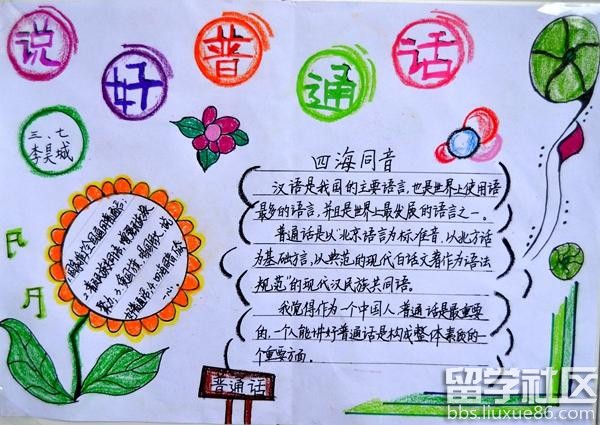 说好普通话
三、七
李昊城
四海同音
汉语是我国的主要语言,也是世界上使用语
最多的语言,并且是世界上最发展的语言之一。
普通话是以北京语言为标准音,以北方话
为基础方言,以典范的现代白话文著作为语法
规范"的现代汉民族共同语。
我觉得作为一个中国人普通话是最重要
的,一个人能讲好普通话是构成整体素质的一
个重要方面。
普通话
留学社区
bbs.liuxue86.com